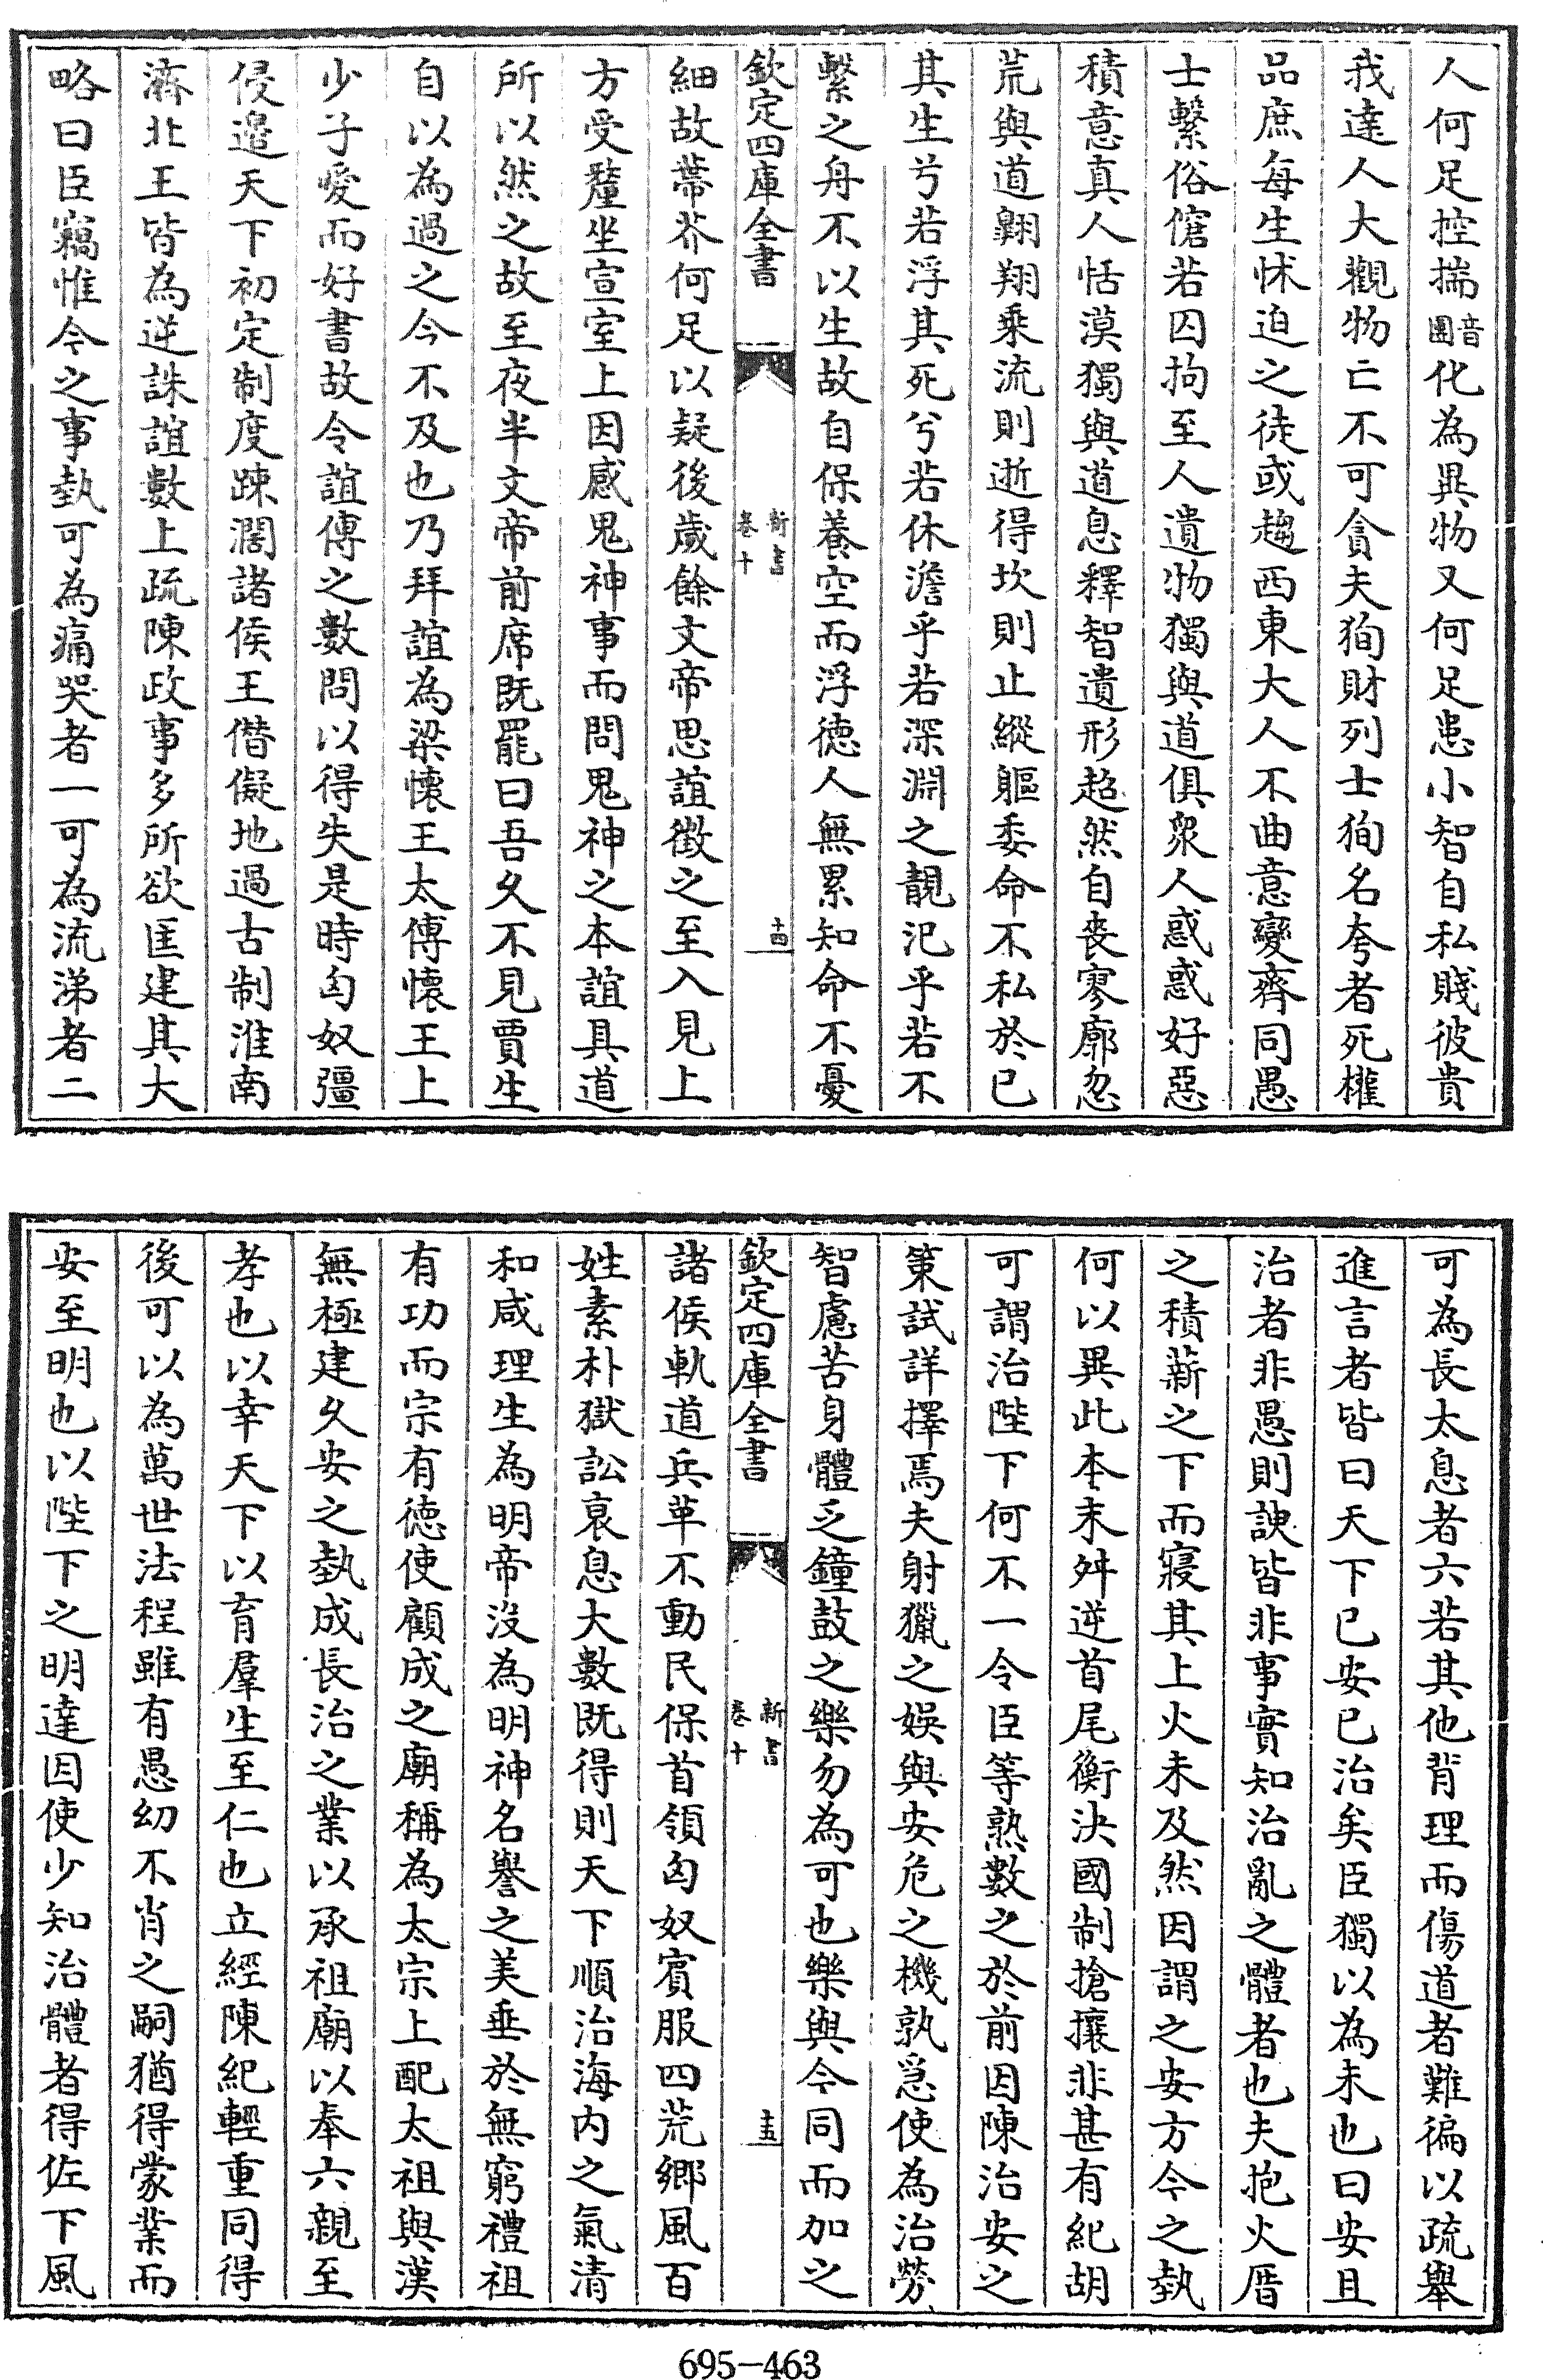 人何足控揣音團化為異物又何足患小智自私賤彼貴
我達人大觀物亡不可貪夫狥財列士狥名夸者死權
品庶每生怵迫之徒或趨西東大人不曲意變齊同愚
士繫俗傖若囚拘至人遺物獨與道俱衆人惑惑好惡
積意真人恬漠獨與道息釋智遺形超然自喪寥廓忽
荒與道翺翔乘流則逝得坎則止縱軀委命不私於已
其生兮若浮其死兮若休澹乎若深淵之靚氾乎若不
繫之舟不以生故自保養空而浮德人無累知命不憂
欽定四庫全書
新書
卷十
十四
細故蔕芥何足以疑後歲餘文帝思誼徵之至入見上
方受釐坐宣室上因感鬼神事而問鬼神之本誼具道
所以然之故至夜半文帝前席既罷曰吾久不見賈生
自以為過之今不及也乃拜誼為梁懷王太傅懷王上
少子愛而好書故令誼傅之數問以得失是時匈奴彊
侵邉天下初定制度疎濶諸侯王僭儗地過古制淮南
濟北王皆為逆誅誼數上疏陳政事多所欲匡建其大
略曰臣竊惟今之事埶可為痛哭者一可為流涕者二
可為長太息者六若其他背理而傷道者難徧以疏舉
進言者皆曰天下已安已治矣臣獨以為未也曰安且
治者非愚則諛皆非事實知治亂之體者也夫抱火厝
之積薪之下而寢其上火未及然因謂之安方今之埶
何以異此本末舛逆首尾衡決國制搶攘非甚有紀胡
可謂治陛下何不一令臣等熟數之於前因陳治安之
策試詳擇焉夫射獵之娛與安危之機孰急使為治勞
智慮苦身體乏鐘鼓之樂勿為可也樂與今同而加之
欽定四庫全書
新書
卷十
十五
諸侯軌道兵革不動民保首領匈奴賓服四荒鄉風百
姓素朴獄訟衰息大數既得則天下順治海内之氣清
和咸理生為明帝沒為明神名譽之美垂於無窮禮祖
有功而宗有德使顧成之廟稱為太宗上配太祖與漢
無極建久安之埶成長治之業以承祖廟以奉六親至
孝也以幸天下以育羣生至仁也立經陳紀輕重同得
後可以為萬世法程雖有愚幼不肖之嗣猶得蒙業而
安至明也以陛下之明達因使少知治體者得佐下風
695-463